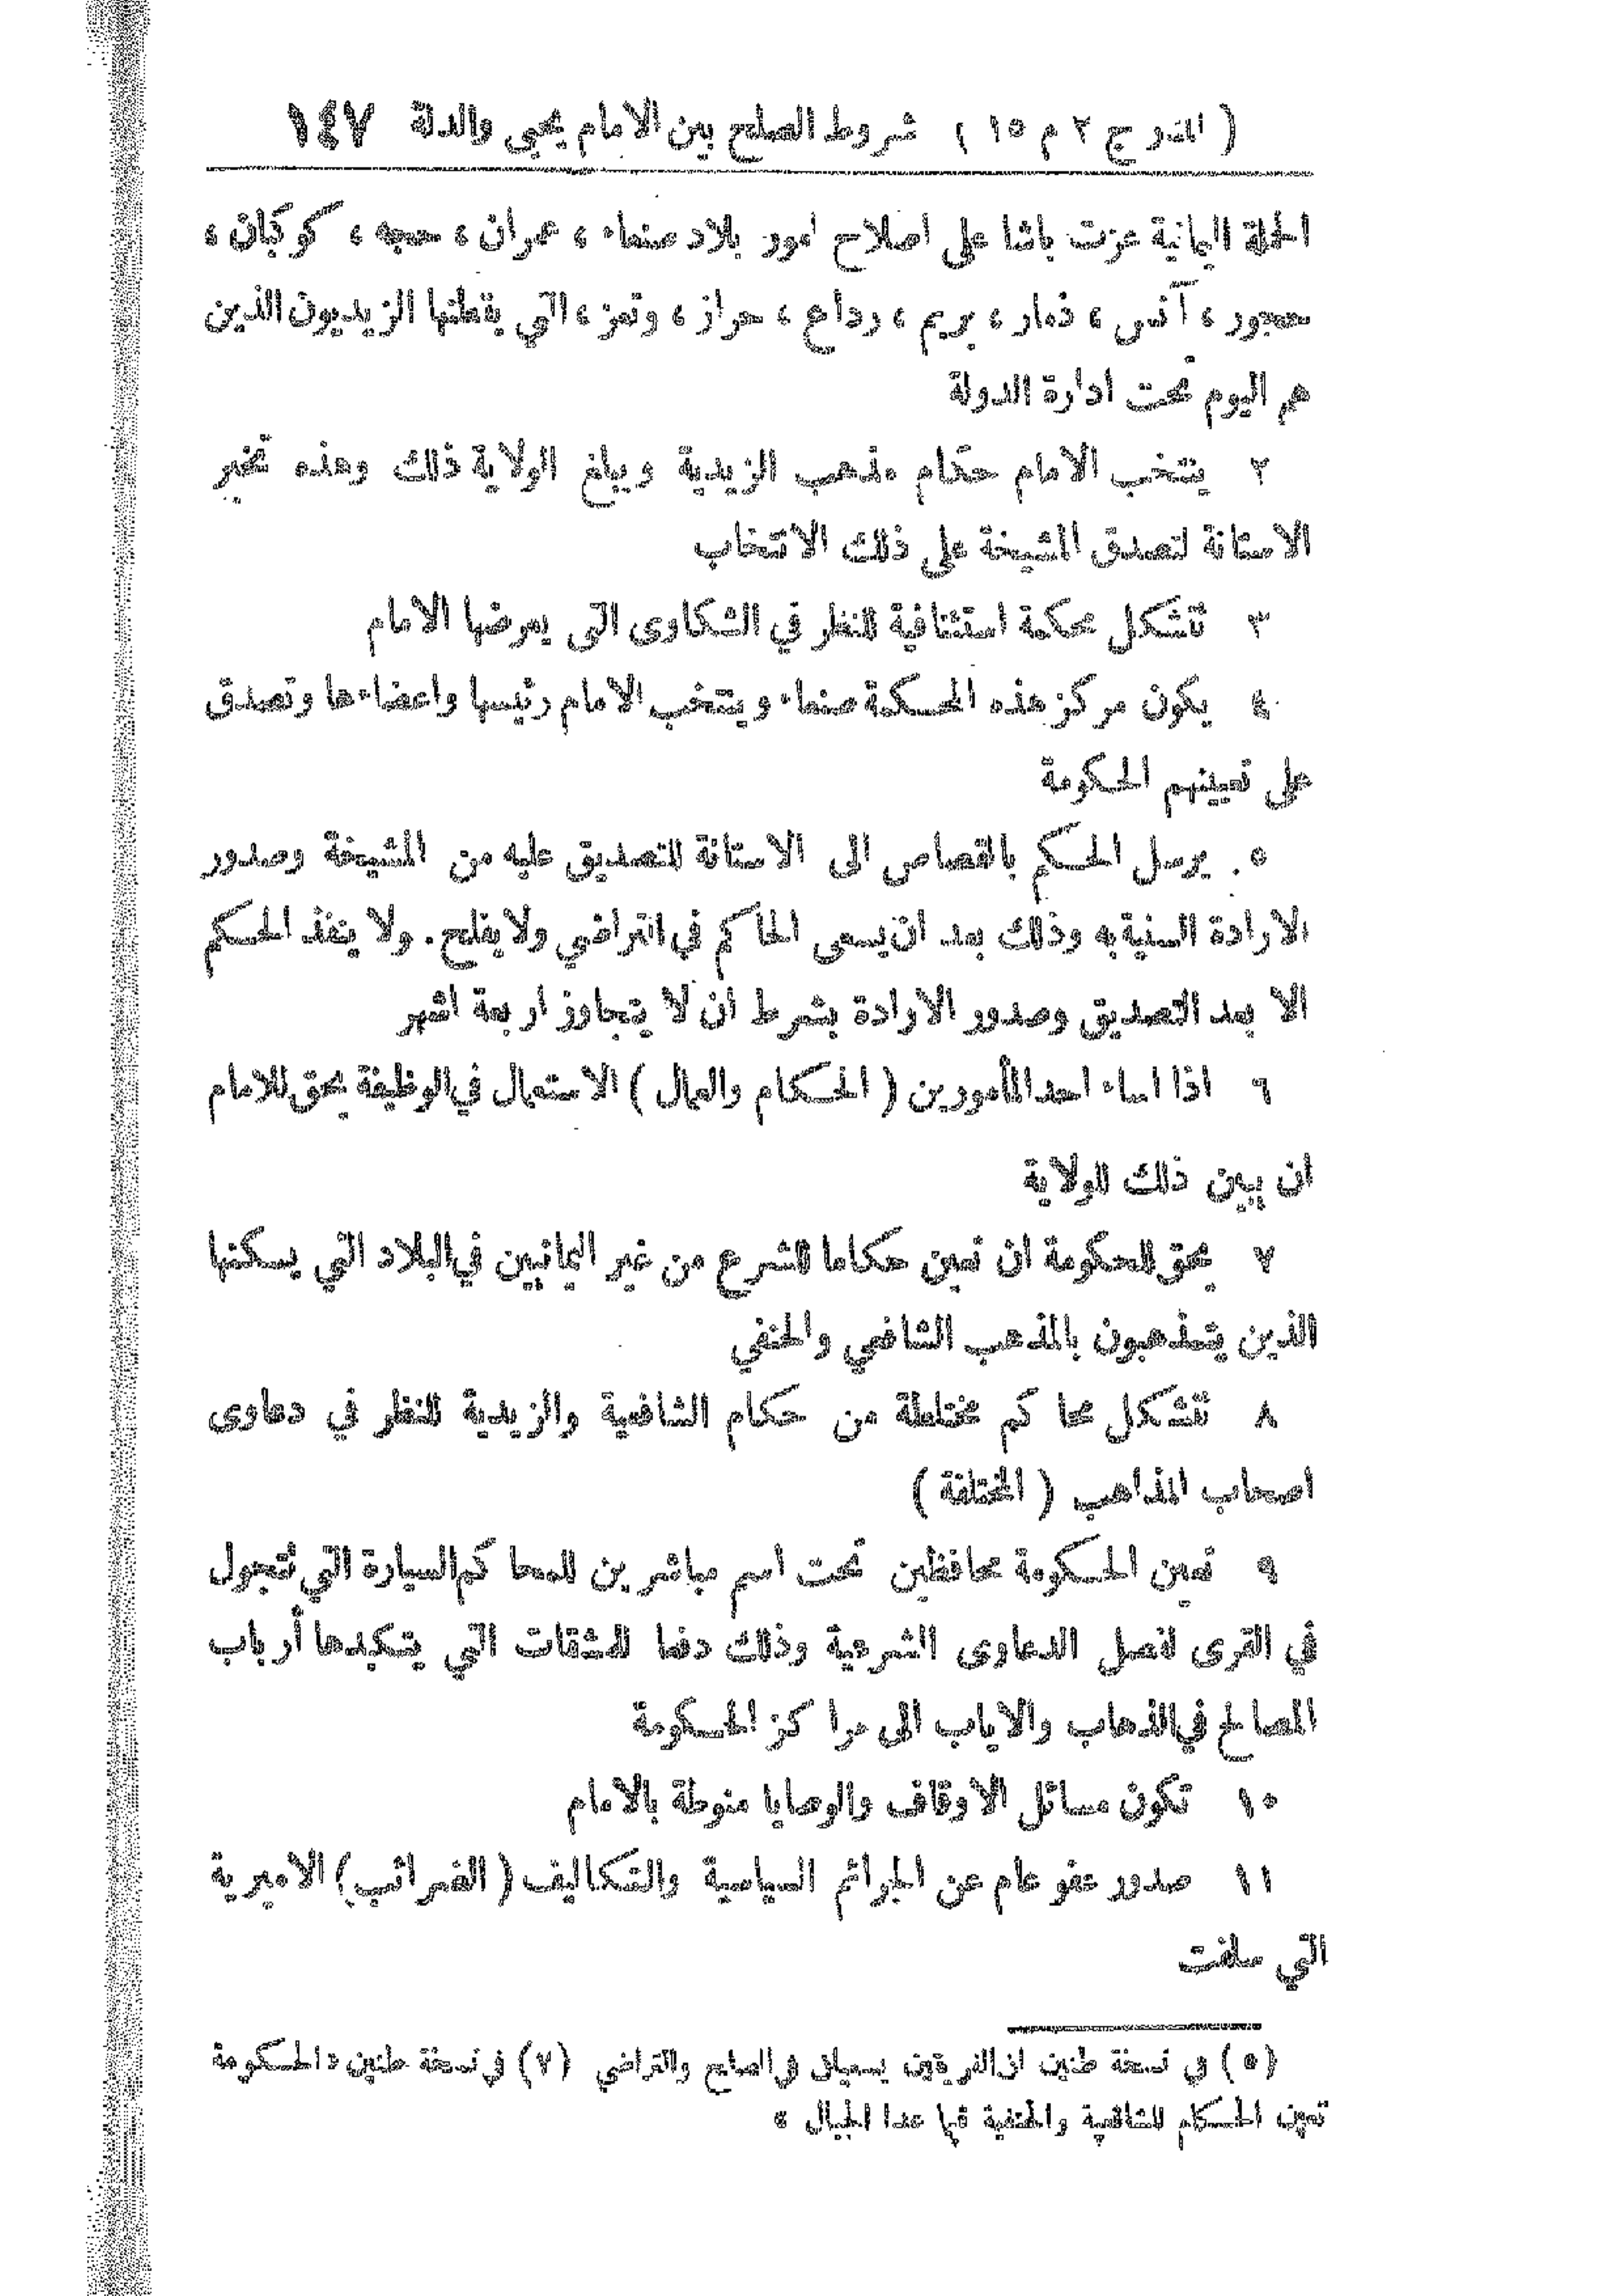 ( المنار ج ٢ م ١٥ ) شروط الصلح بين الامام يحيى والدلة ١٤٧
الحملة اليمانية عزت باشا على اصلاح امور بلاد صنعاء ، عمران ، حجه ، كوكبان ،
حجور ، آنس ، ذمار ، يريم ، رداع ، حراز ، وتعز ، التي يقطنها الزيديون الذين
هم اليوم تحت ادارة الدولة
٢ ينتخب الامام حكام مذهب الزيدية ويبلغ الولاية ذلك وهذه تخبر
الاستانة لتصدق المشيخة على ذلك الانتخاب
٣ تتشكل محكمة استئنافية للنظر في الشكاوى التى يعرضها الامام
٤ يكون مركز هذه المحكمة صنعاء وينتخب الامام رئيسها واعضاءها وتصدق
على تعيينهم الحكومة
٥ يرسل الحكم بالقصاص الى الاستانة للتصديق عليه من المشيخة وصدور
الارادة السنية به وذلك بعد ان يسعى الحاكم في التراضي ولا يفلح. ولا ينفذ الحكم
الا بعد التصديق وصدور الارادة بشرط ان لا يتجاوز اربعة اشهر
٦ اذا اساء احد المأمورين ( الحكام والعمال ) الاستعمال في الوظيفة يحق للامام
ان يبين ذلك للولاية
٧ يحق للحكومة ان تعين حكاما للشرع من غير اليمانيين في البلاد التي يسكنها
الذين يتمذهبون بالمذهب الشافعي والحنفي
٨ تتشكل محاكم مختلطة من حكام الشافعية والزيدية للنظر في دعاوى
اصحاب المذاهب ( المختلفة )
٩ تعين الحكومة محافظين تحت اسم مباشرين للمحاكم السيارة التي تتجول
في القرى لفصل الدعاوى الشرعية وذلك دفعا للمشقات التي يتكبدها أرباب
المصالح في الذهاب والاياب الى مراكز الحكومة
١٠ تكون مسائل الاوقاف والوصايا منوطة بالامام
١١ صدور عفو عام عن الجرائم السياسية والتكاليف ( الضرائب ) الاميرية
التي سلفت
(٥) في نسخة طنين ان الفريقين يسعيان في الصلح والتراضي (٧) في نسخة طنين « الحكومة
تعين الحكام للشافعية والحنفية فيما عدا الجبال »